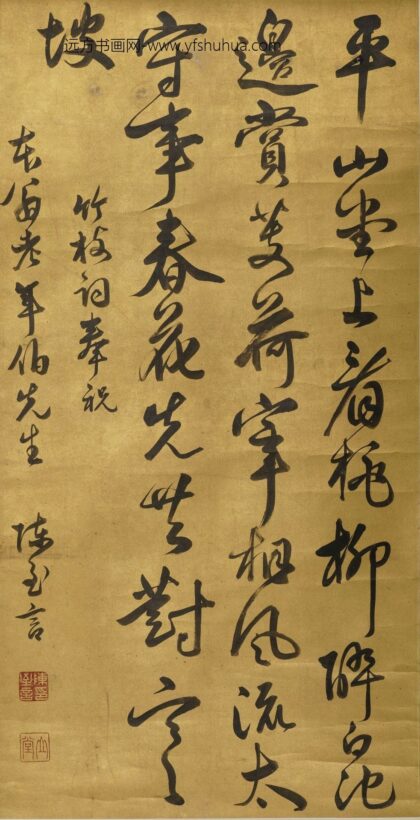 平山堂上看桃柳醉白池
邊賞芰荷宰相風流太
守事春花先對
坡
竹枝詞奉祝
老年伯先生 陳至言
远方书画网-www.yfshuhua.com